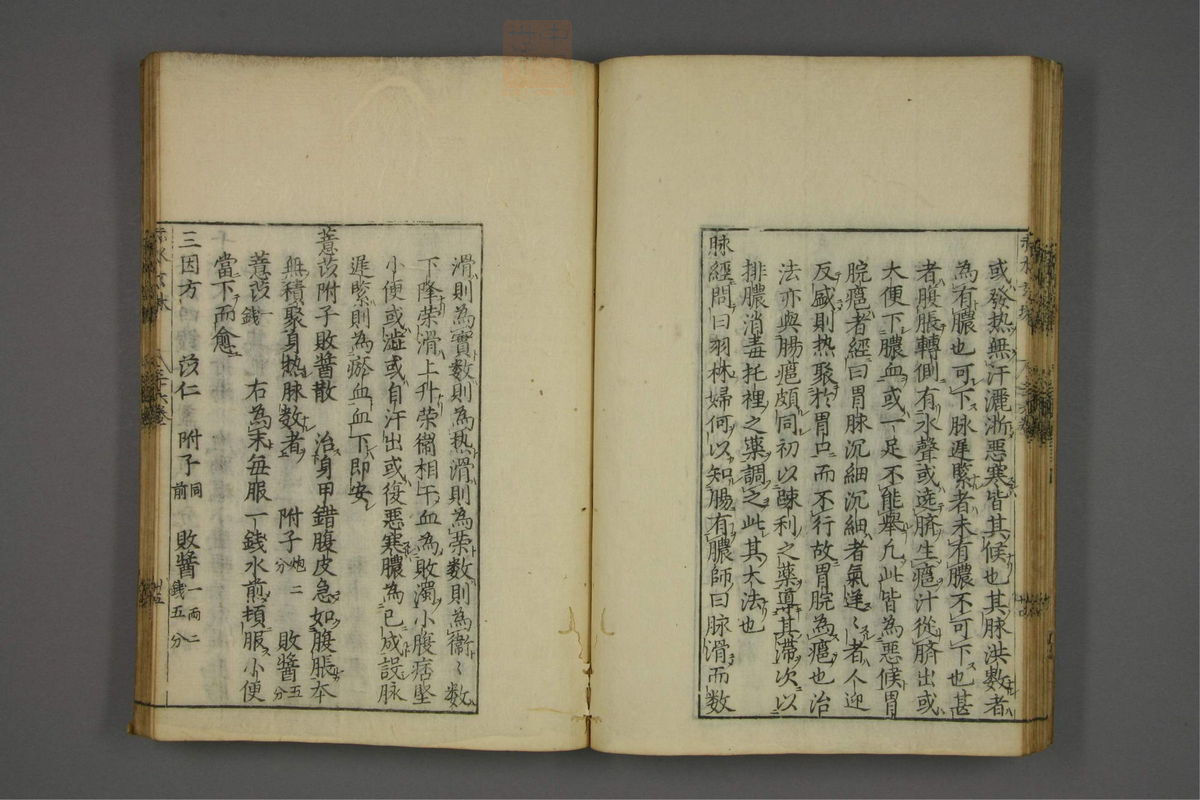 或發热無汗灑淅惡寒皆其候也其脉洪數者
為有膿也可下脉遲緊者未有膿不可下也甚
者腹脹轉側有水聲或遶臍生瘡汁從臍出或
大便下膿血或一足不能舉凡此皆為惡候胃
脘癰者經曰胃脉沉細沉細者氣逆〻者人迎
反盛則热聚於胃口而不行故胃脘為癰也治
法亦與腸癰頗同初以踈利之藥導其滯次以
排膿消毒托裡之藥調之此其大法也
脉經問曰羽林婦何以知腸有膿師曰脉滑而數
滑則為實數則為热滑則為荣數則為衞〻數
下降荣滑上升荣衞相干血為敗濁小腹痞堅
小便或澁或自汗出或復惡寒膿為已成設脉
遲緊則為瘀血血下即安
薏苡附子敗醬散 治身甲錯腹皮急如腹脹本
無積聚身热脉數者 附子炮二分 敗醬五分
薏苡一錢 右為末每服一錢水煎頓服小便
當下而愈
三因方 苡仁 附子同前 敗醬一兩二錢五分